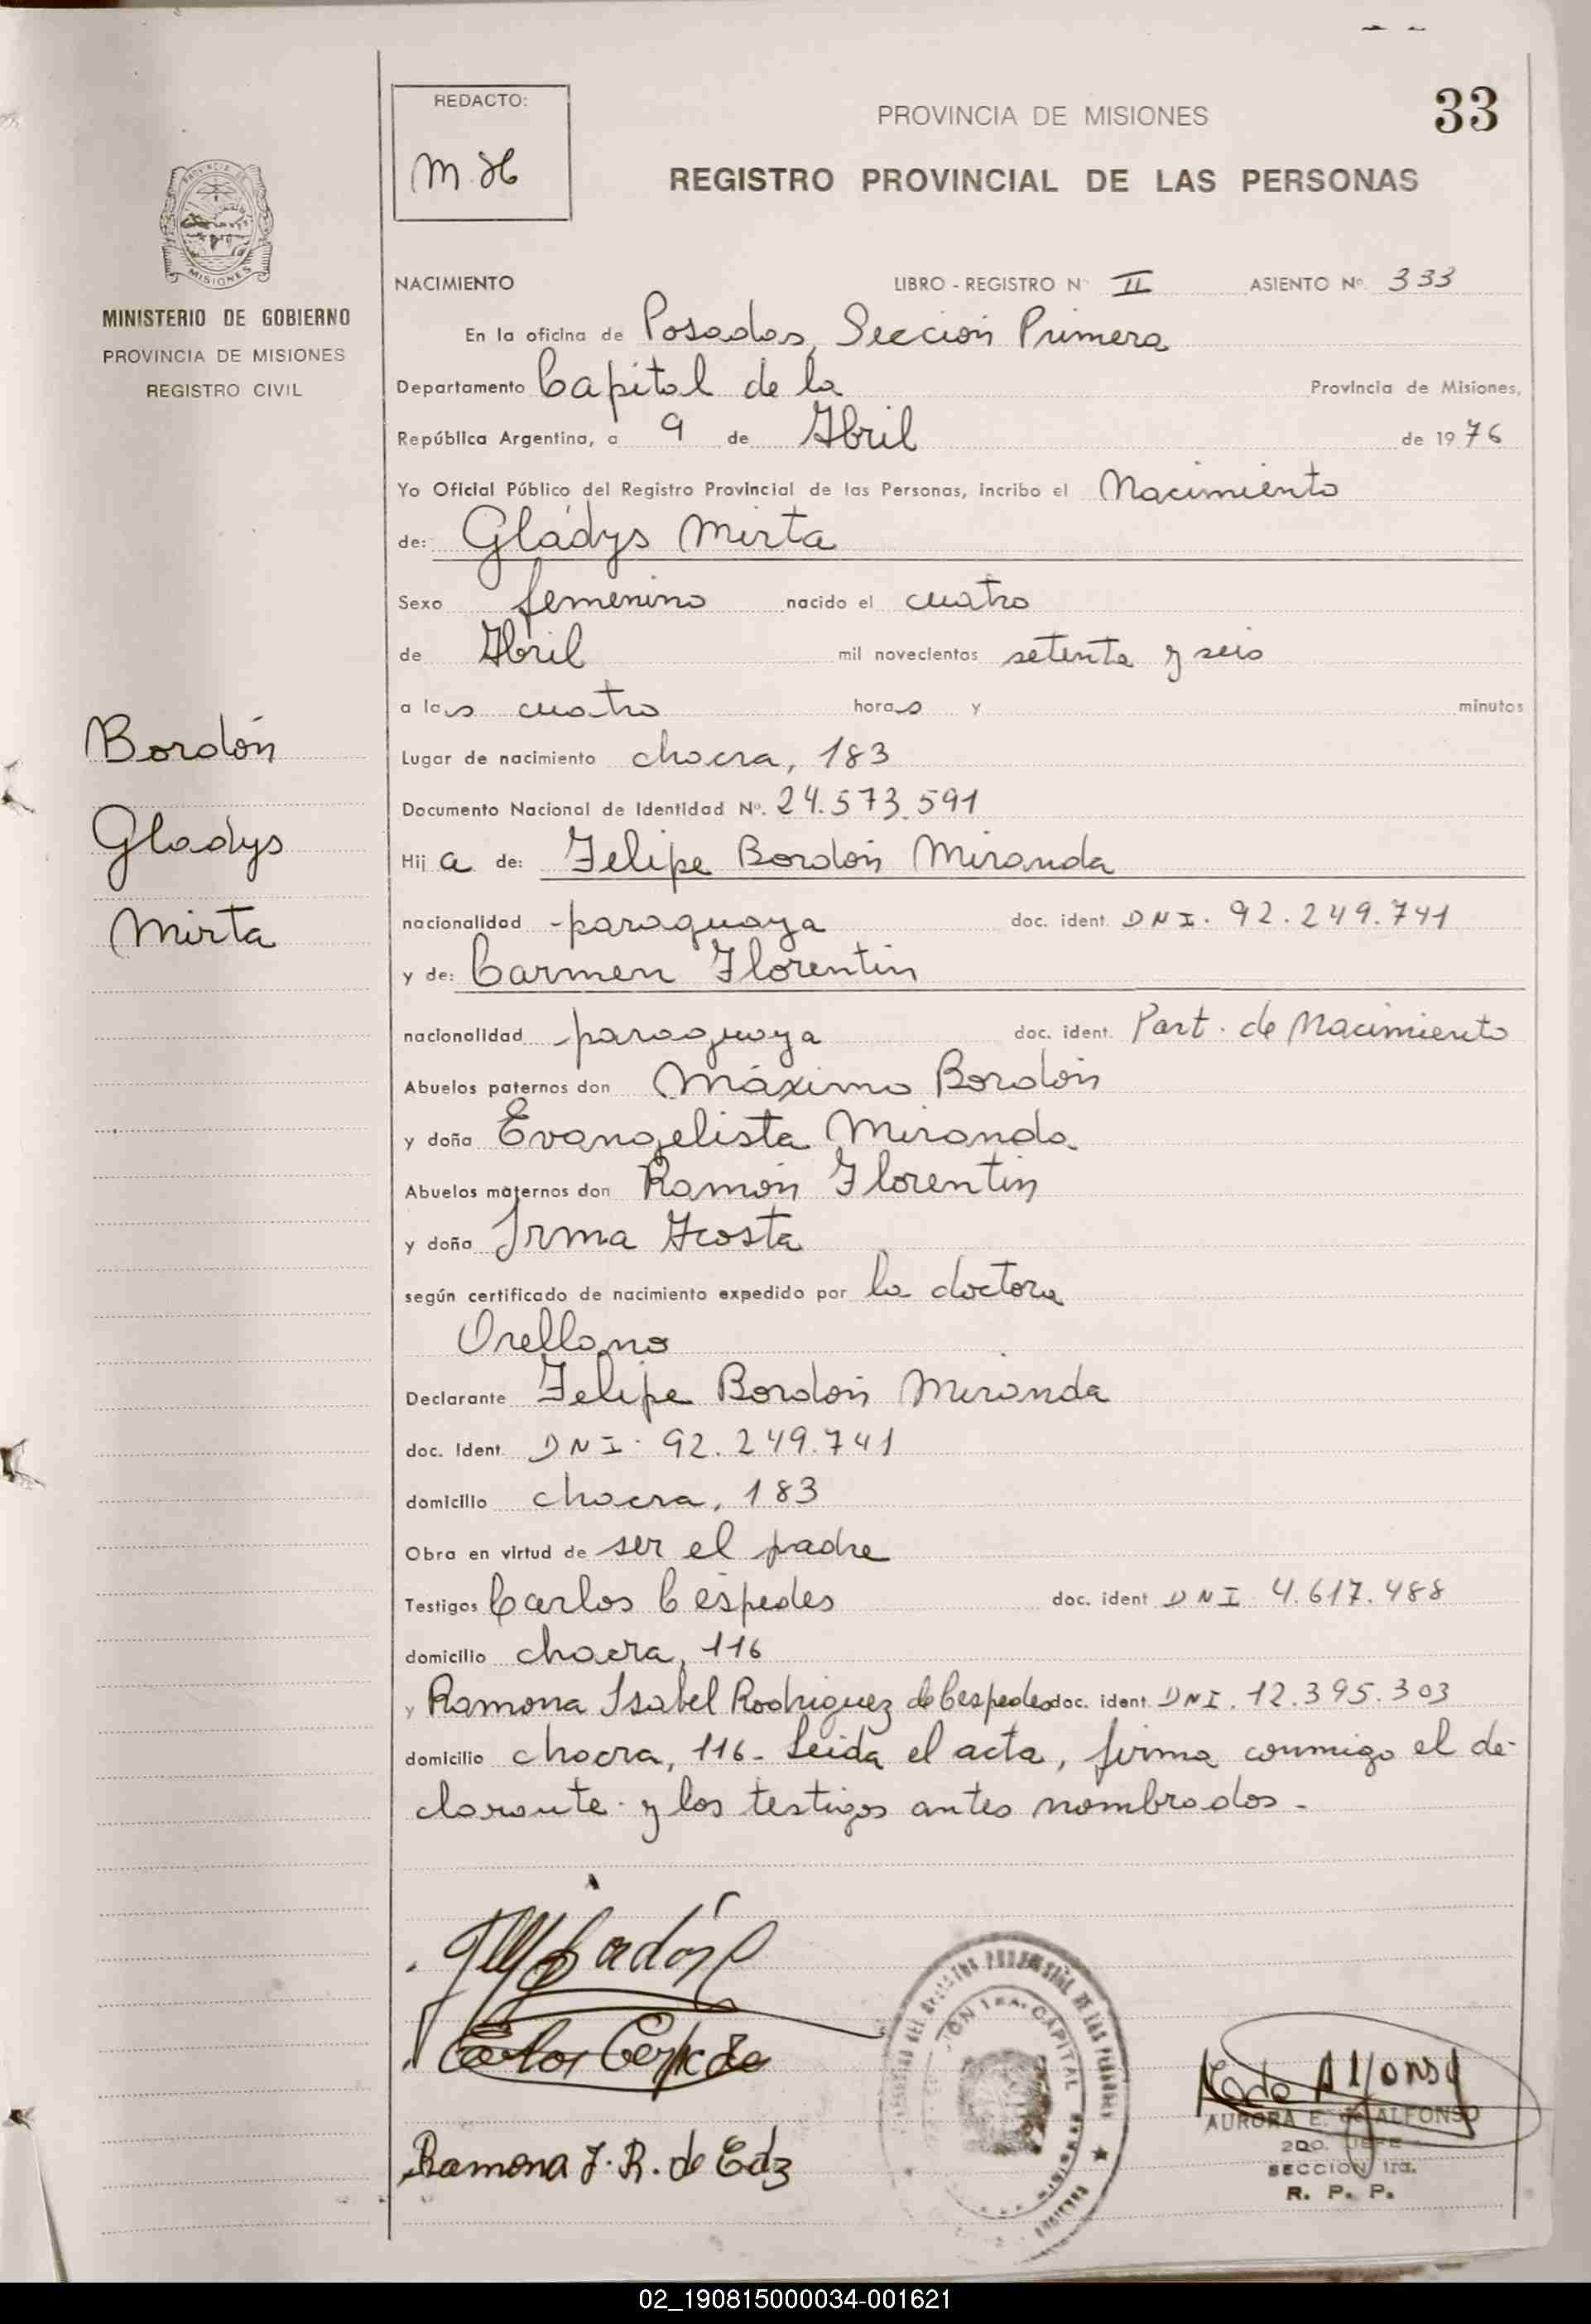 33
REDACTO:
M.H
PROVINCIA DE MISIONES
REGISTRO PROVINCIAL DE LAS PERSONAS
MISIONES
MINISTERIO DE GOBIERNO
PROVINCIA DE MISIONES
REGISTRO CIVIL
Bordón
Gladys
Mirta
NACIMIENTO LIBRO - REGISTRO Nº II ASIENTO Nº 333
En la oficina de Posadas, Sección Primera
Departamento Capital de la Provincia de Misiones,
República Argentina, a 9 de Abril de 1976
Yo Oficial Público del Registro Provincial de las Personas, incribo el Nacimiento
de: Gladys Mirta
Sexo femenino nacido el cuatro
de Abril mil novecientos setenta y seis
a las cuatro horas y minutos
Lugar de nacimiento chacra, 183
Documento Nacional de Identidad Nº. 24.573.591
Hija de: Felipe Bordón Miranda
nacionalidad paraguaya doc. ident. DNI. 92.249.741
y de: Carmen Florentin
nacionalidad paraguaya doc. ident. Part. de Nacimiento
Abuelos paternos don Máximo Bordón
y doña Evangelista Miranda
Abuelos maternos don Ramón Florentin
y doña Irma Acosta
según certificado de nacimiento expedido por la doctora
Orellano
Declarante Felipe Bordón Miranda
doc. Ident. DNI. 92.249.741
domicilio chacra, 183
Obra en virtud de ser el padre
Testigos Carlos Céspedes doc. ident DNI 4.617.488
domicilio chacra, 116
y Ramona Isabel Rodriguez de Cespedes doc. ident. DNI. 12.395.303
domicilio chacra, 116- Leida el acta, firma conmigo el de-
clarante y los testigos antes nombrados-
Carlos Cespedes
Ramona I. R. de Cdz
SECCION 1RA. CAPITAL
AURORA E. de ALFONSO
2DO. JEFE
SECCION 1ra.
R. P. P.
02_190815000034-001621